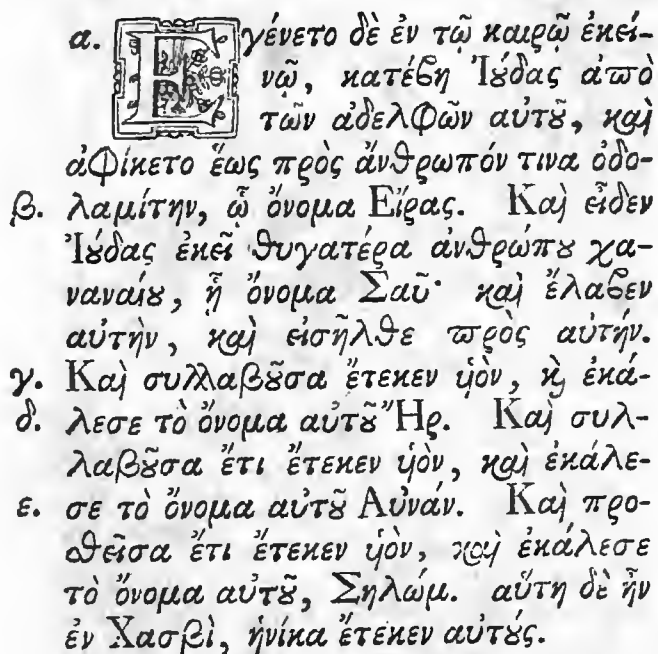 α. Εγένετο δὲ ἐν τῷ καιρῷ ἐκεί-
νῳ, κατέβη Ἰούδας ἀπὸ
τῶν ἀδελφῶν αὐτοῦ, καὶ
ἀφίκετο ἕως πρὸς ἄνθρωπόν τινα ὀδο-
β. λαμίτην, ᾧ ὄνομα Εἴρας. Καὶ εἶδεν
Ἰούδας ἐκεῖ θυγατέρα ἀνθρώπου χα-
ναναίου, ᾗ ὄνομα Σαῦ· καὶ ἔλαβεν
αὐτὴν, καὶ εἰσῆλθε πρὸς αὐτήν.
γ. Καὶ συλλαβοῦσα ἔτεκεν υἱὸν, καὶ ἐκά-
δ. λεσε τὸ ὄνομα αὐτοῦ Ἤρ. Καὶ συλ-
λαβοῦσα ἔτι ἔτεκεν υἱὸν, καὶ ἐκάλε-
ε. σε τὸ ὄνομα αὐτοῦ Αὐνάν. Καὶ προ-
σθεῖσα ἔτι ἔτεκεν υἱὸν, καὶ ἐκάλεσε
τὸ ὄνομα αὐτοῦ, Σηλώμ. αὕτη δὲ ἦν
ἐν Χασβὶ, ἡνίκα ἔτεκεν αὐτούς.